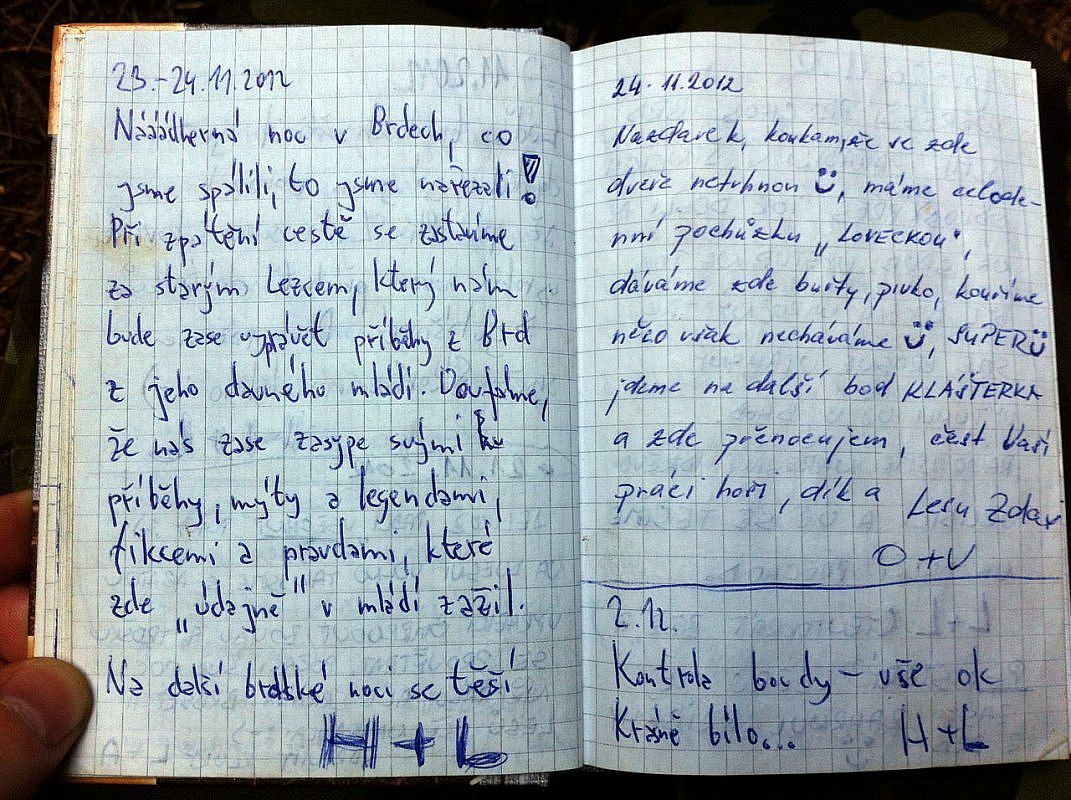 23.-24.11.2012
Náááádherná noc v Brdech, co
jsme spálili, to jsme nařezali!
Při zpáteční cestě se zastavíme
za starým Lezcem, který nám
bude zase vyprávět příběhy z Brd
z jeho dávného mládí. Doufáme,
že nás zase zasype svými
příběhy, mýty a legendami,
fikcemi a pravdami, které
zde „údajně" v mládí zažil.
Na další brdské noci se těší
H+L
24.11.2012
Nazdárek, koukám, že se zde
dveře netrhnou, máme celode-
nní pochůzku „LOVECKOU",
dáváme zde buřty, pivko, kouříme
něco však necháváme, SUPER
jdeme na další bod KLÁŠTERKA
a zde přenocujem, čest Vaší
práci hoři, dík a Lesu Zdar
O+V
2.12.
Kontrola boudy - vše ok
Krásně bílo... H+L